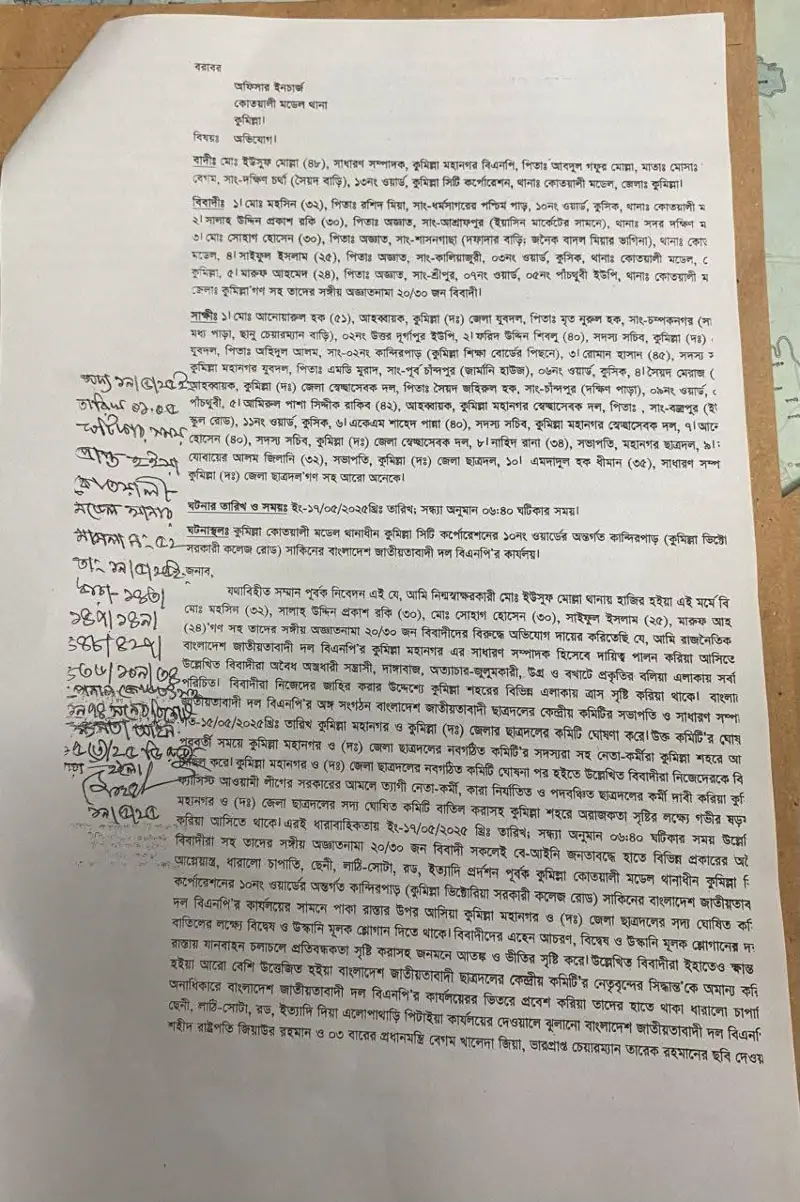 বরাবর
অফিসার ইনচার্জ
কোতয়ালী মডেল থানা
কুমিল্লা।
বিষয়ঃ অভিযোগ।
বাদীঃ মোঃ ইউসুফ মোল্লা (৪৮), সাধারণ সম্পাদক, কুমিল্লা মহানগর বিএনপি, পিতাঃ আবদুল গফুর মোল্লা, মাতাঃ মোসাঃ
বেগম, সাং-দক্ষিণ চর্থা (সৈয়দ বাড়ি), ১৩নং ওয়ার্ড, কুমিল্লা সিটি কর্পোরেশন, থানাঃ কোতয়ালী মডেল, জেলাঃ কুমিল্লা।
বিবাদীঃ ১। মোঃ মহসিন (৩২), পিতাঃ রশিদ মিয়া, সাং-ধর্মসাগরের পশ্চিম পাড়, ১০নং ওয়ার্ড, কুসিক, থানাঃ কোতয়ালী ম
২। সালাহ উদ্দিন প্রকাশ রকি (৩০), পিতাঃ অজ্ঞাত, সাং-আশ্রাফপুর (ইয়াসিন মার্কেটের সামনে), থানাঃ সদর দক্ষিণ ম
৩। মোঃ সোহাগ হোসেন (৩০), পিতাঃ অজ্ঞাত, সাং-শাসনগাছা (দফাদার বাড়ি; জনৈক বাদল মিয়ার ভাগিনা), থানাঃ কোত
মডেল, ৪। সাইফুল ইসলাম (২৫), পিতাঃ অজ্ঞাত, সাং-কালিয়াজুরী, ০৩নং ওয়ার্ড, কুসিক, থানাঃ কোতয়ালী মডেল,
কুমিল্লা, ৫। মারুফ আহমেদ (২৪), পিতাঃ অজ্ঞাত, সাং-শ্রীপুর, ০৭নং ওয়ার্ড, ০৫নং পাঁচথুবী ইউপি, থানাঃ কোতয়ালী ম
জেলাঃ কুমিল্লা'গণ সহ তাদের সঙ্গীয় অজ্ঞাতনামা ২০/৩০ জন বিবাদী।
সাক্ষীঃ ১। মোঃ আনোয়ারুল হক (৫১), আহবায়ক, কুমিল্লা (দঃ) জেলা যুবদল, পিতাঃ মৃত নুরুল হক, সাং-চম্পকনগর (সা
মধ্য পাড়া, ছানু চেয়ারম্যান বাড়ি), ০২নং উত্তর দূর্গাপুর ইউপি, ২। ফরিদ উদ্দিন শিবলু (৪০), সদস্য সচিব, কুমিল্লা (দঃ)
যুবদল, পিতাঃ অহিদুল আলম, সাং-০২নং কান্দিরপাড় (কুমিল্লা শিক্ষা বোর্ডের পিছনে), ৩। রোমান হাসান (৪৫), সদস্য স
কুমিল্লা মহানগর যুবদল, পিতাঃ এমডি মুরাদ, সাং-পূর্ব চাঁন্দপুর (জার্মানি হাউজ), ০৬নং ওয়ার্ড, কুসিক, ৪। সৈয়দ মেরাজ (
আহবায়ক, কুমিল্লা (দঃ) জেলা স্বেচ্ছাসেবক দল, পিতাঃ সৈয়দ জহিরুল হক, সাং-চাঁন্দপুর (দক্ষিণ পাড়া), ০৯নং ওয়ার্ড,
পাঁচথুবী, ৫। আমিরুল পাশা সিদ্দীক রাকিব (৪২), আহবায়ক, কুমিল্লা মহানগর স্বেচ্ছাসেবক দল, পিতাঃ , সাং-বজ্রপুর (ই
স্কুল রোড), ১১নং ওয়ার্ড, কুসিক, ৬। একেএম শাহেদ পান্না (৪০), সদস্য সচিব, কুমিল্লা মহানগর স্বেচ্ছাসেবক দল, ৭। আনে
হোসেন (৪০), সদস্য সচিব, কুমিল্লা (দঃ) জেলা স্বেচ্ছাসেবক দল, ৮। নাহিদ রানা (৩৪), সভাপতি, মহানগর ছাত্রদল, ৯।
যোবায়ের আলম জিলানি (৩২), সভাপতি, কুমিল্লা (দঃ) জেলা ছাত্রদল, ১০। এমদাদুল হক ধীমান (৩৫), সাধারণ সম্প
কুমিল্লা (দঃ) জেলা ছাত্রদল'গণ সহ আরো অনেকে।
ঘটনার তারিখ ও সময়ঃ ইং-১৭/০৫/২০২৫খ্রিঃ তারিখ; সন্ধ্যা অনুমান ০৬:৪০ ঘটিকার সময়।
ঘটনাস্থলঃ কুমিল্লা কোতয়ালী মডেল থানাধীন কুমিল্লা সিটি কর্পোরেশনের ১০নং ওয়ার্ডের অন্তর্গত কান্দিরপাড় (কুমিল্লা ভিক্টো
সরকারী কলেজ রোড) সাকিনের বাংলাদেশ জাতীয়তাবাদী দল বিএনপি'র কার্যালয়।
জনাব,
যথাবিহীত সম্মান পূর্বক নিবেদন এই যে, আমি নিম্নস্বাক্ষরকারী মোঃ ইউসুফ মোল্লা থানায় হাজির হইয়া এই মর্মে বি
মোঃ মহসিন (৩২), সালাহ উদ্দিন প্রকাশ রকি (৩০), মোঃ সোহাগ হোসেন (৩০), সাইফুল ইসলাম (২৫), মারুফ আহ
(২৪)'গণ সহ তাদের সঙ্গীয় অজ্ঞাতনামা ২০/৩০ জন বিবাদীদের বিরুদ্ধে অভিযোগ দায়ের করিতেছি যে, আমি রাজনৈতিক
বাংলাদেশ জাতীয়তাবাদী দল বিএনপি'র কুমিল্লা মহানগর এর সাধারণ সম্পাদক হিসেবে দায়িত্ব পালন করিয়া আসিতে
উল্লেখিত বিবাদীরা অবৈধ অস্ত্রধারী সন্ত্রাসী, দাঙ্গাবাজ, অত্যাচার-জুলুমকারী, উগ্র ও বখাটে প্রকৃতির বলিয়া এলাকায় সর্বা
পরিচিত। বিবাদীরা নিজেদের জাহির করার উদ্দেশ্যে কুমিল্লা শহরের বিভিন্ন এলাকায় ত্রাস সৃষ্টি করিয়া থাকে। বাংলা
জাতীয়তাবাদী দল বিএনপি'র অঙ্গ সংগঠন বাংলাদেশ জাতীয়তাবাদী ছাত্রদলের কেন্দ্রীয় কমিটির সভাপতি ও সাধারণ সম্পা
গত-১৫/০৫/২০২৫খ্রিঃ তারিখ কুমিল্লা মহানগর ও কুমিল্লা (দঃ) জেলার ছাত্রদলের কমিটি ঘোষণা করে। উক্ত কমিটি'র ঘোষ
পরবর্তী সময়ে কুমিল্লা মহানগর ও (দঃ) জেলা ছাত্রদলের নবগঠিত কমিটি'র সদস্যরা সহ নেতা-কর্মীরা কুমিল্লা শহরে আ
মিছিল করে। কুমিল্লা মহানগর ও (দঃ) জেলা ছাত্রদলের নবগঠিত কমিটি ঘোষনা পর হইতে উল্লেখিত বিবাদীরা নিজেদেরকে বি
ফ্যাসিস্ট আওয়ামী লীগের সরকারের আমলে ত্যাগী নেতা-কর্মী, কারা নির্যাতিত ও পদবঞ্চিত ছাত্রদলের কর্মী দাবী করিয়া কুমি
মহানগর ও (দঃ) জেলা ছাত্রদলের সদ্য ঘোষিত কমিটি বাতিল করাসহ কুমিল্লা শহরে অরাজকতা সৃষ্টির লক্ষ্যে গভীর ষড়য
করিয়া আসিতে থাকে। এরই ধারাবাহিকতায় ইং-১৭/০৫/২০২৫ খ্রিঃ তারিখ; সন্ধ্যা অনুমান ০৬:৪০ ঘটিকার সময় উল্লে
বিবাদীরা সহ তাদের সঙ্গীয় অজ্ঞাতনামা ২০/৩০ জন বিবাদী সকলেই বে-আইনি জনতাবদ্ধে হাতে বিভিন্ন প্রকারের অবৈ
আগ্নেয়াস্ত্র, ধারালো চাপাতি, ছেনী, লাঠি-সোটা, রড, ইত্যাদি প্রর্দশন পূর্বক কুমিল্লা কোতয়ালী মডেল থানাধীন কুমিল্লা সি
কর্পোরেশনের ১০নং ওয়ার্ডের অন্তর্গত কান্দিরপাড় (কুমিল্লা ভিক্টোরিয়া সরকারী কলেজ রোড) সাকিনের বাংলাদেশ জাতীয়তাব
দল বিএনপি'র কার্যলয়ের সামনে পাকা রাস্তার উপর আসিয়া কুমিল্লা মহানগর ও (দঃ) জেলা ছাত্রদলের সদ্য ঘোষিত কমি
বাতিলের লক্ষ্যে বিদ্বেষ ও উস্কানি মূলক শ্লোগান দিতে থাকে। বিবাদীদের এহেন আচরণ, বিদ্বেষ ও উস্কানি মূলক শ্লোগানের দ
রাস্তায় যানবাহন চলাচলে প্রতিবন্ধকতা সৃষ্টি করাসহ জনমনে আতঙ্ক ও ভীতির সৃষ্টি করে। উল্লেখিত বিবাদীরা ইহাতেও ক্ষান্ত
হইয়া আরো বেশি উত্তেজিত হইয়া বাংলাদেশ জাতীয়তাবাদী ছাত্রদলের কেন্দ্রীয় কমিটি'র নেতৃবৃন্দের সিদ্ধান্ত'কে অমান্য করি
অনাধিকারে বাংলাদেশ জাতীয়তাবাদী দল বিএনপি'র কার্যলয়েরর ভিতরে প্রবেশ করিয়া তাদের হাতে থাকা ধারালো চাপাতি
ছেনী, লাঠি-সোটা, রড, ইত্যাদি দিয়া এলোপাথাড়ি পিটাইয়া কার্যলয়ের দেওয়ালে ঝুলানো বাংলাদেশ জাতীয়তাবাদী দল বিএনপি
শহীদ রাষ্ট্রপতি জিয়াউর রহমান ও ০৩ বারের প্রধানমন্ত্রি বেগম খালেদা জিয়া, ভারপ্রাপ্ত চেয়ারম্যান তারেক রহমানের ছবি দেওয়